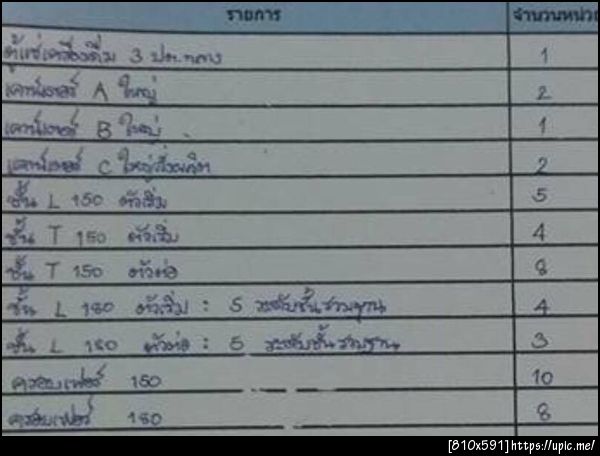 รายการ จำนวนหน่วย
ตู้แช่เครื่องดื่ม 3 ประตู 1
เคาน์เตอร์ A ใหญ่ 2
เคาน์เตอร์ B ใหญ่ 1
เคาน์เตอร์ C ใหญ่ 2
ชั้น L 150 ตัวเริ่ม 5
ชั้น T 150 ตัวเริ่ม 4
ชั้น T 150 ตัวต่อ 8
ชั้น L 180 ตัวเริ่ม : 5 ระดับชั้นรวมฐาน 4
ชั้น L 180 ตัวต่อ : 5 ระดับชั้นรวมฐาน 3
ครอบเฟอร์ 150 10
ครอบเฟอร์ 180 8
[810x591]https://upic.me/